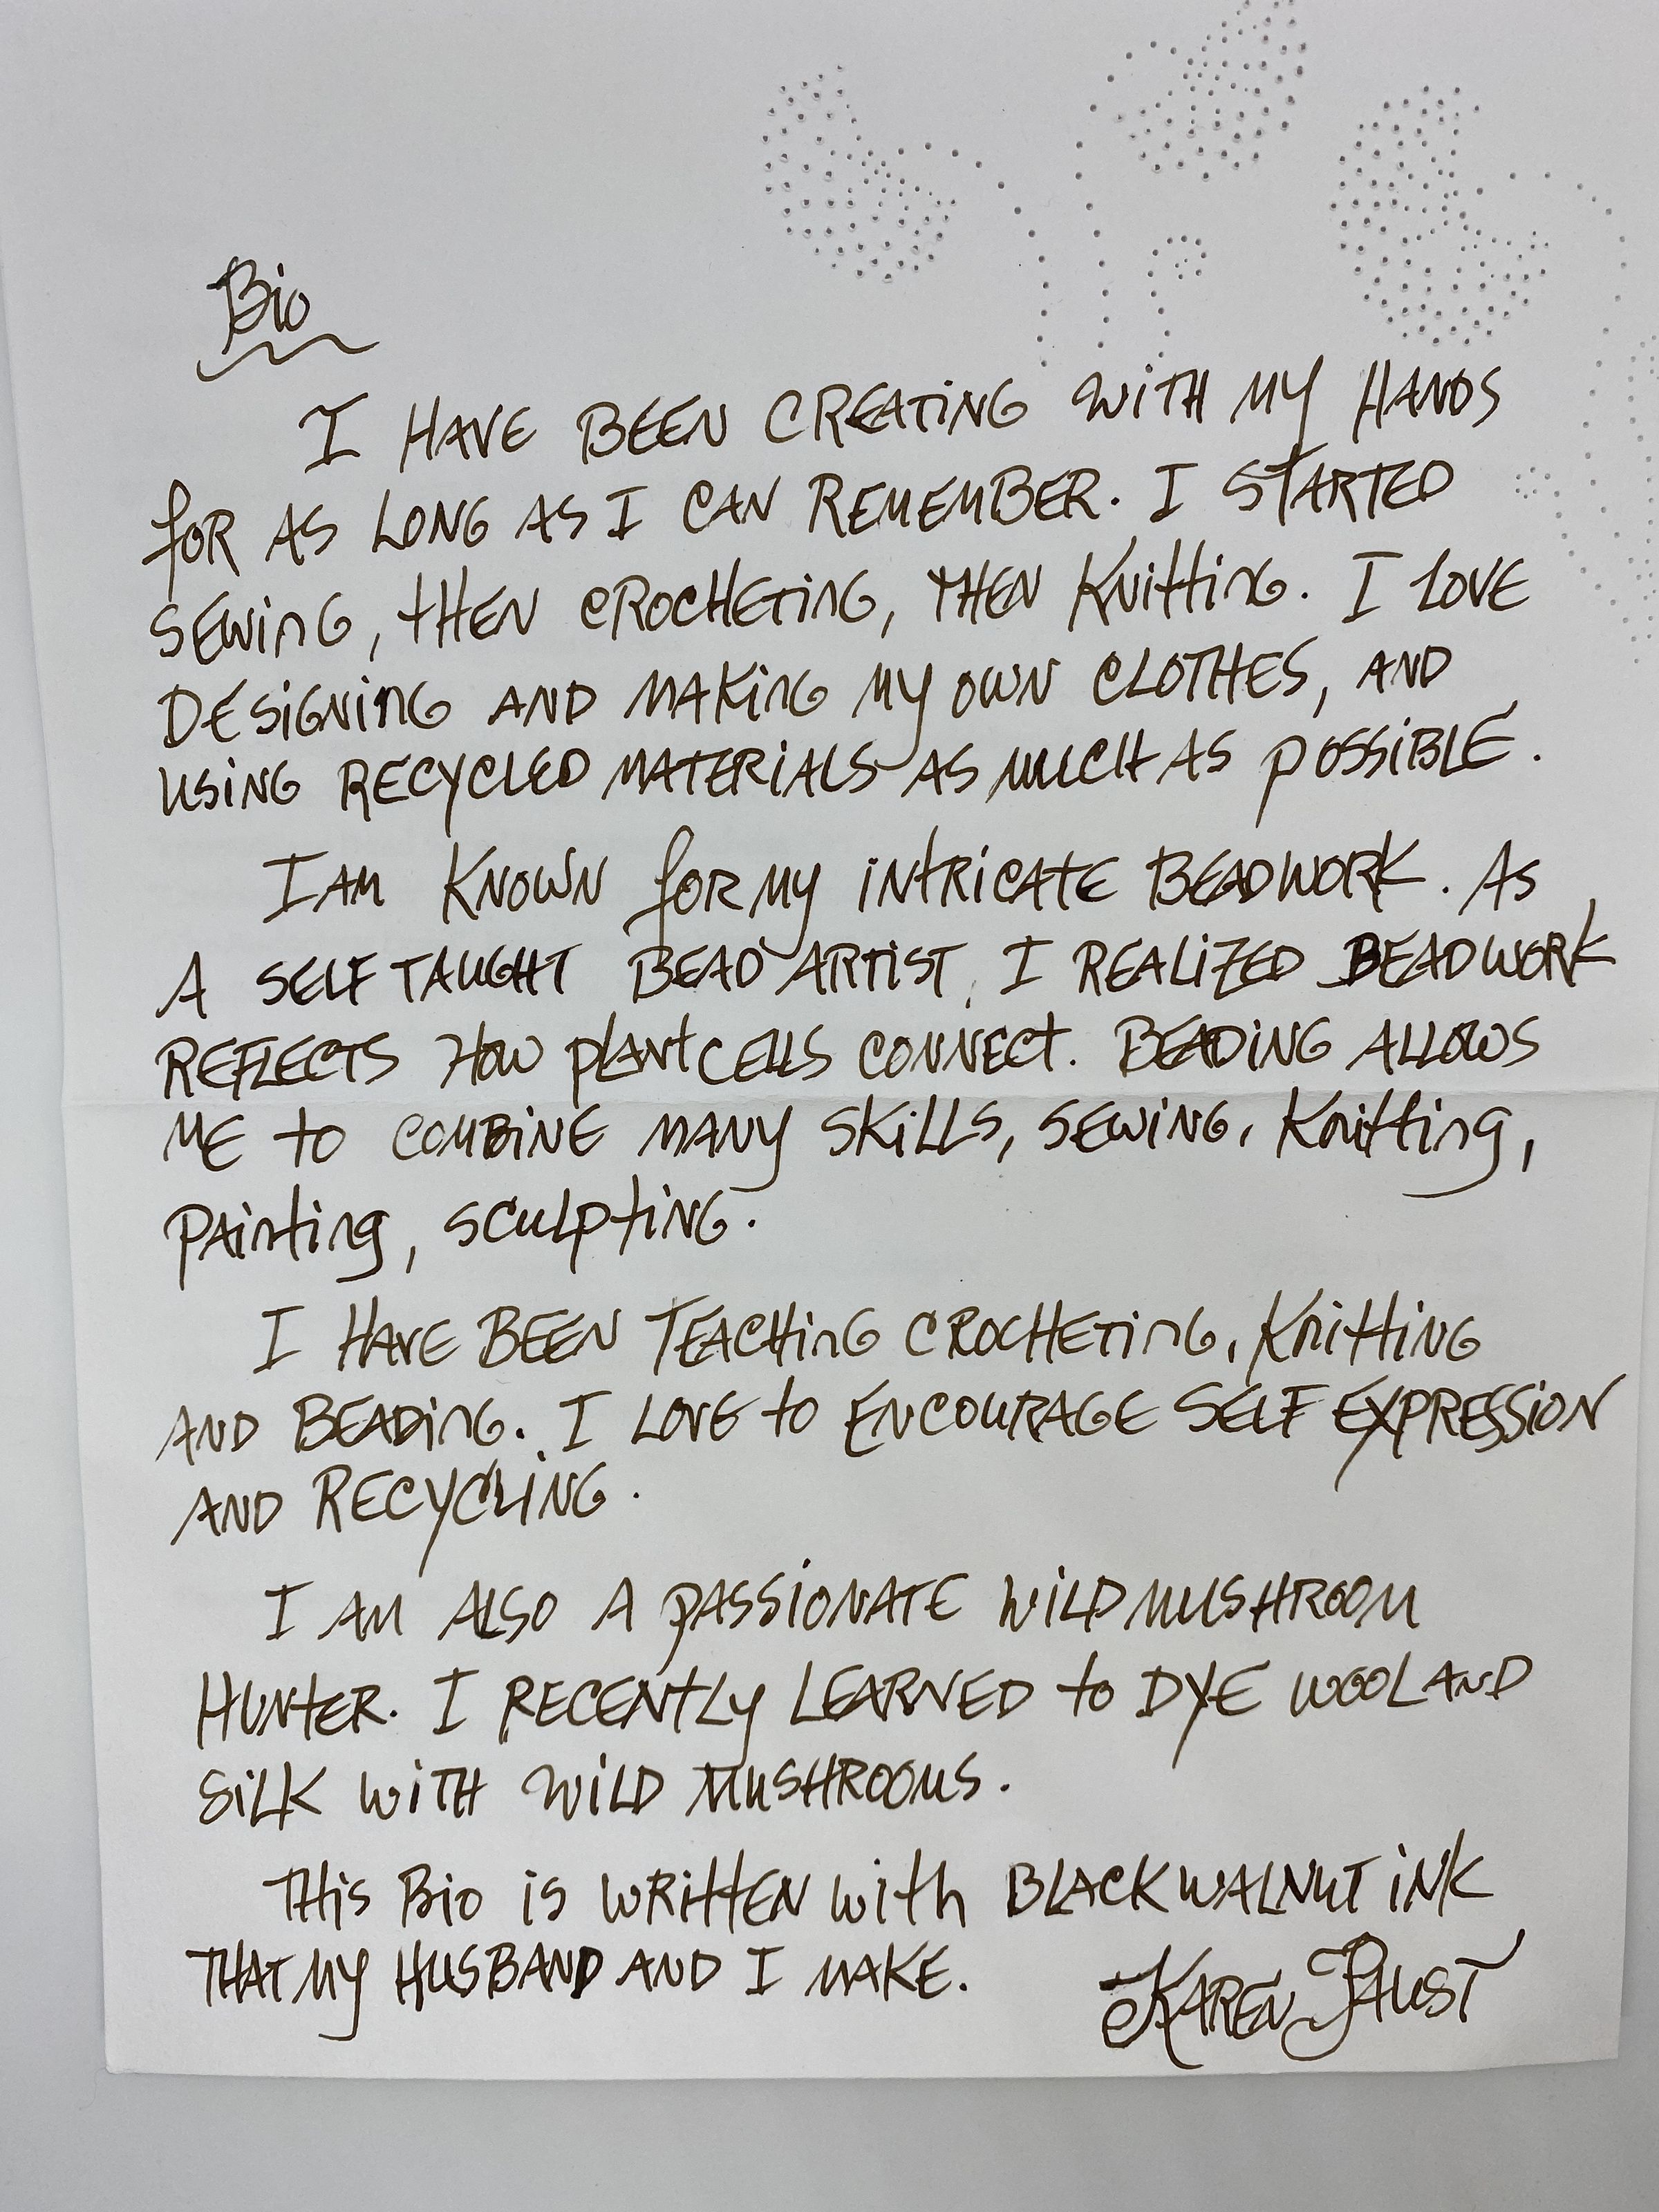 Bio
I HAVE BEEN CREATING WITH MY HANDS
FOR AS LONG AS I CAN REMEMBER. I STARTED
SEWING, THEN CROCHETING, THEN KNITTING. I LOVE
DESIGNING AND MAKING MY OWN CLOTHES, AND
USING RECYCLED MATERIALS AS MUCH AS POSSIBLE.
I AM KNOWN FOR MY INTRICATE BEADWORK. AS
A SELF TAUGHT BEAD ARTIST, I REALIZED BEADWORK
REFLECTS HOW PLANT CELLS CONNECT. BEADING ALLOWS
ME TO COMBINE MANY SKILLS, SEWING, KNITTING,
PAINTING, SCULPTING.
I HAVE BEEN TEACHING CROCHETING, KNITTING
AND BEADING. I LOVE TO ENCOURAGE SELF EXPRESSION
AND RECYCLING.
I AM ALSO A PASSIONATE WILD MUSHROOM
HUNTER. I RECENTLY LEARNED TO DYE WOOL AND
SILK WITH WILD MUSHROOMS.
THIS BIO IS WRITTEN WITH BLACK WALNUT INK
THAT MY HUSBAND AND I MAKE.
KAREN PAUST